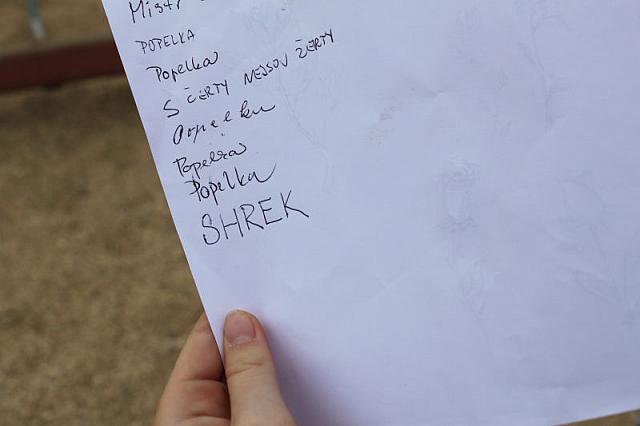 Mistr
POPELKA
Popelka
S ČERTY NEJSOU ŽERTY
Popelka
Popelka
SHREK